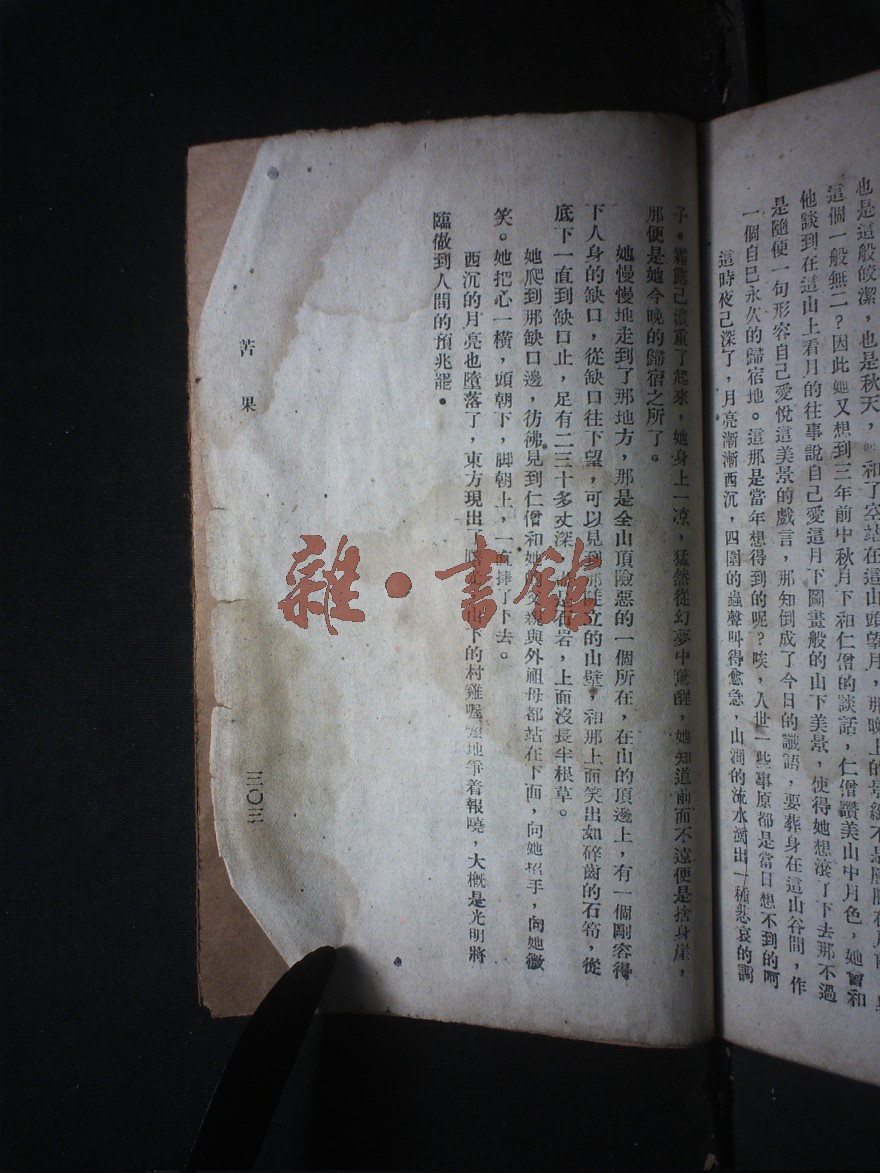 也是這般皎潔，也是秋天，
這個一般無二？因此她又想到三年前中秋月下和仁僧的談話，仁僧讚美山中月色，她曾和
他談到在這山上看月的往事說自己愛這月下圖畫般的山下美景，使得她想滾了下去那不過
是隨便一句形容自己愛悅這美景的戲言，那知倒成了今日的讖語，要葬身在這山谷間，作
一個自己永久的歸宿地。這那是當年想得到的呢？唉，人世一些事原都是當日想不到的呵
這時夜已深了，月亮漸漸西沉，四圍的蟲聲叫得愈急，山澗的流水濺出一種悲哀的調
子。霜露已濃重了起來，她身上一凉，猛然從幻夢中驚醒，她知道前面不遠便是捨身崖，
那便是她今晚的歸宿之所了。
她慢慢地走到了那地方，那是全山頂險惡的一個所在，在山的頂邊上，有一個剛容得
下人身的缺口，從缺口往下望，可以見到那陡立的山壁，和那上面笑出如碎齒的石筍，從
底下一直到缺口止，足有二三十多丈深，石岩，上面沒長半根草。
她爬到那缺口邊，彷彿見到仁僧和她的父親與外祖母都站在下面，向她招手，向她微
笑。她把心一橫，頭朝下，脚朝上，一直摔了下去。
西沉的月亮也墮落了，東方現出了下的村雞喔喔地爭着報曉，大概是光明將
臨做到人間的預兆罷。
苦果
三〇三
雜·書館